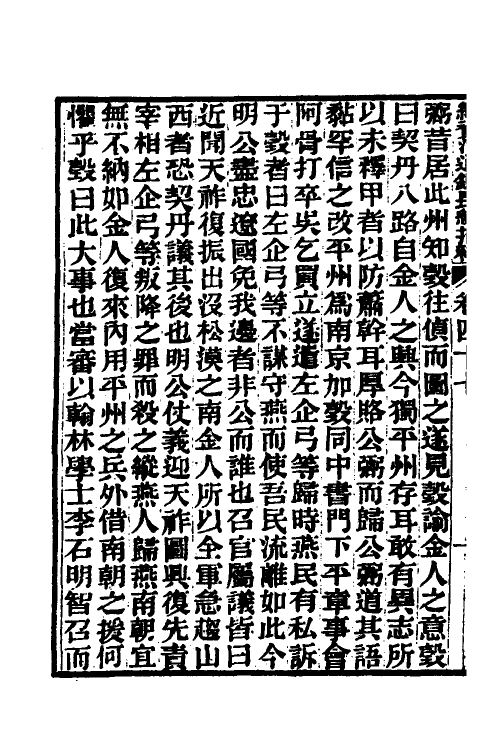 弼昔居此州知瑴往偵而圖之遂見瑴諭金人之意瑴
曰契丹八路自金人之興今獨平州存耳敢有異志所
以未釋甲者以防蕭幹耳厚賂公弼而歸公弼道其語
黏罕信之改平州爲南京加瑴同中書門下平章事會
阿骨打卒吳乞買立遂遣左企弓等歸時燕民有私訴
于瑴者曰左企弓等不謀守燕而使吾民流離如此今
明公盡忠遼國免我邊者非公而誰也召官屬議皆曰
近聞天祚復振出沒松漠之南金人所以全軍急趨山
西者恐契丹議其後也明公仗義迎天祚圖興復先責
宰相左企弓等叛降之罪而殺之縱燕人歸燕南朝宜
無不納如金人復來內用平州之兵外借南朝之援何
懼乎瑴曰此大事也當審以翰林學士李石明智召而
卷四十七